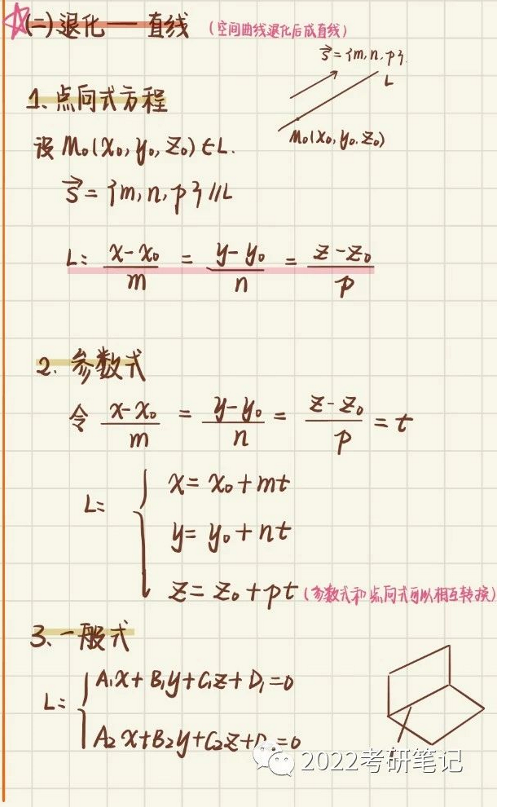 (二)退化—直线 (空间曲线退化后成直线)
S⃗={m,n,p}
L
M₀(x₀,y₀,z₀)
1. 点向式方程
设 M₀(x₀,y₀,z₀)∈L.
S⃗={m,n,p}//L
L: (x-x₀)/m = (y-y₀)/n = (z-z₀)/p
2. 参数式
令 (x-x₀)/m = (y-y₀)/n = (z-z₀)/p = t
L: { x=x₀+mt
y=y₀+nt
z=z₀+pt (参数式和点向式可以相互转换)
3. 一般式
L: { A₁x+B₁y+C₁z+D₁=0
A₂x+B₂y+C₂z+D₂=0
2022考研笔记